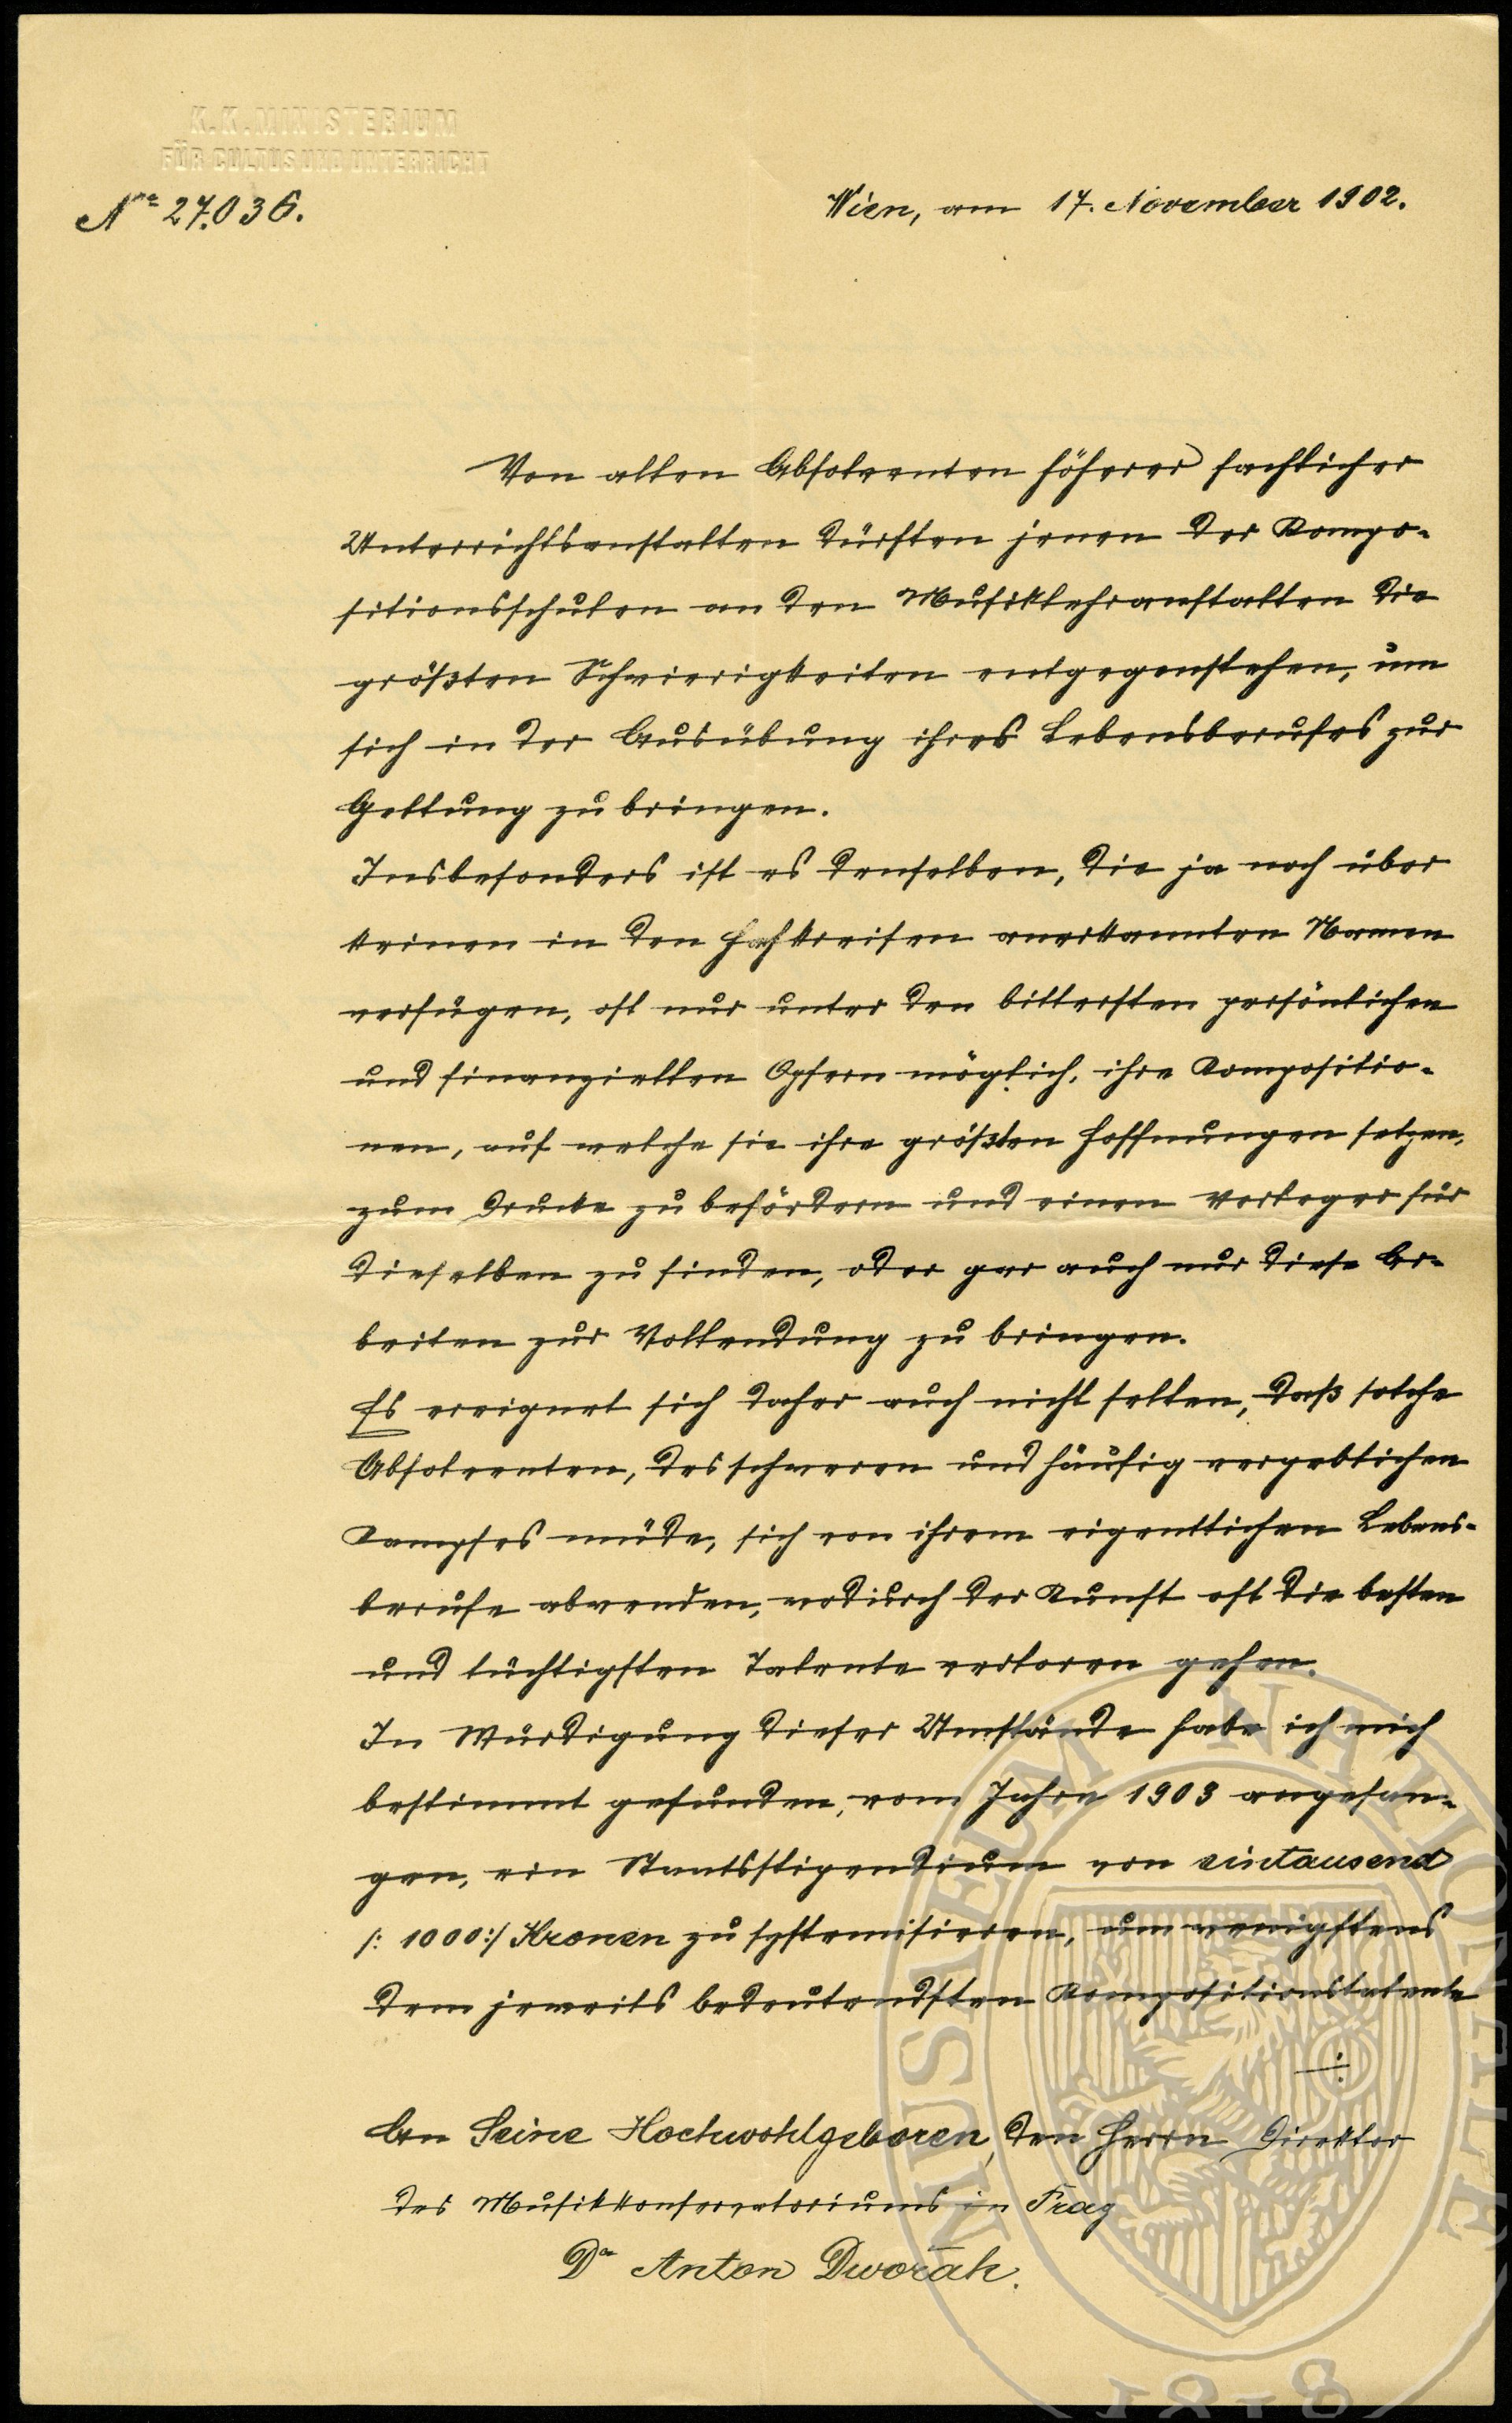 K.K. MINISTERIUM
FÜR CULTUS UND UNTERRICHT
Nro 27.036.
Wien, am 17. November 1902.
Von allen Absolventen höherer fachlicher
Unterrichtsanstalten dürften jenen der Kompo-
sitionsschulen an den Musiklehranstalten die
größten Schwierigkeiten entgegenstehen, um
sich in der Ausübung ihres Lebensberufes zur
Geltung zu bringen.
Insbesonders ist es denselben, die ja noch über
keinen in den Fachkreisen anerkannten Namen
verfügen, oft nur unter den bittersten persönlichen
und finanziellen Opfern möglich, ihre Kompositio-
nen, auf welche sie ihre größten Hoffnungen setzen,
zum Drucke zu befördern und einen Verleger für
dieselben zu finden, oder gar auch nur diese Ar-
beiten zur Vollendung zu bringen.
Es ereignet sich daher auch nicht selten, daß solche
Absolventen, des schweren und häufig vergeblichen
Kampfes müde, sich von ihrem eigentlichen Lebens-
berufe abwenden, wodurch der Kunst oft die besten
und tüchtigsten Talente verloren gehen.
In Würdigung dieser Umstände habe ich mich
bestimmt gefunden, vom Jahre 1903 angefan-
gen, ein Staatsstipendium von eintausend
/: 1000 :/ Kronen zu systemisieren, um wenigstens
dem jeweils bedeutendsten Kompositionstalente
./.
An Seine Hochwohlgeboren, den Herrn Direktor
des Musikkonservatoriums in Prag
Dr Anton Dvořák.
MUSAEUM NATIONALE
1818